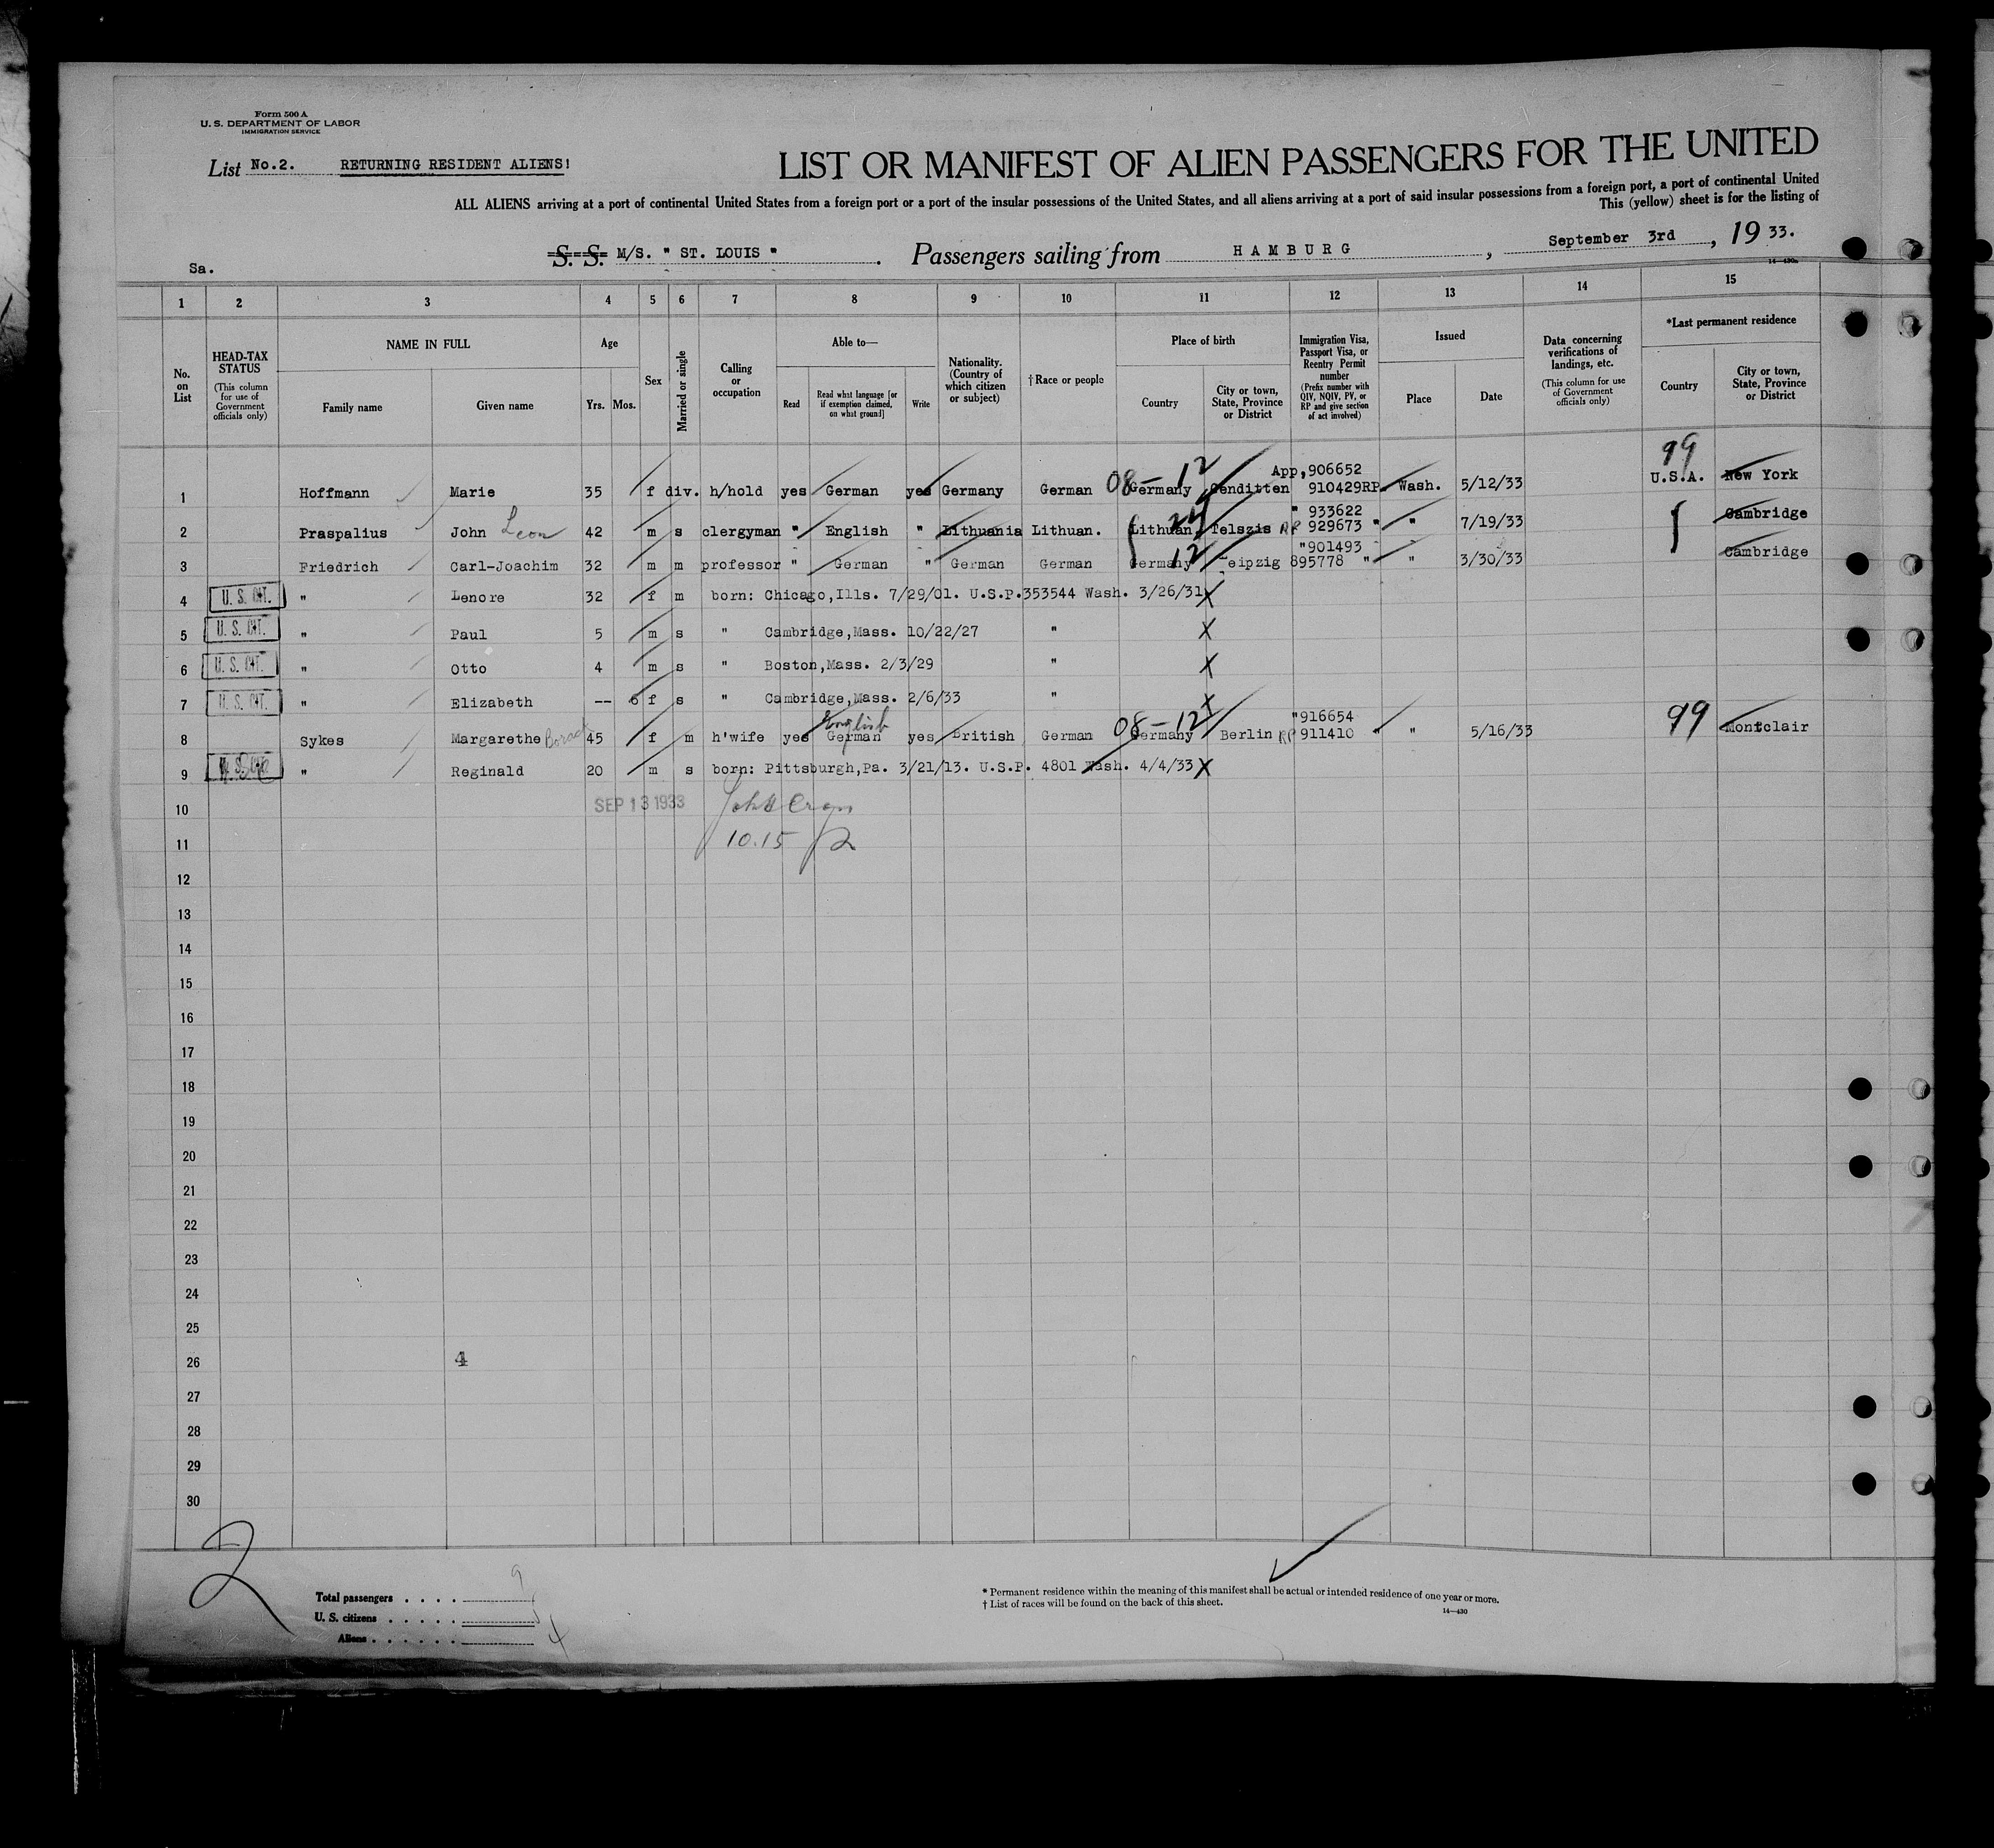 Form 500 A
U. S. DEPARTMENT OF LABOR
IMMIGRATION SERVICE
List No.2. RETURNING RESIDENT ALIENS!
LIST OR MANIFEST OF ALIEN PASSENGERS FOR THE UNITED
ALL ALIENS arriving at a port of continental United States from a foreign port or a port of the insular possessions of the United States, and all aliens arriving at a port of said insular possessions from a foreign port, a port of continental United
This (yellow) sheet is for the listing of
S. S. M/S. " ST. LOUIS " . Passengers sailing from HAMBURG , September 3rd , 19 33.
Sa.
14—430a
1 2 3 4 5 6 7 8 9 10 11 12 13 14 15
No. on List
HEAD-TAX STATUS
(This column for use of Government officials only)
NAME IN FULL
Family name Given name
Age
Yrs. Mos.
Sex
Married or single
Calling or occupation
Able to—
Read Read what language [or if exemption claimed, on what ground] Write
Nationality. (Country of which citizen or subject)
† Race or people
Place of birth
Country City or town, State, Province or District
Immigration Visa, Passport Visa, or Reentry Permit number
(Prefix number with QIV, NQIV, PV, or RP and give section of act involved)
Issued
Place Date
Data concerning verifications of landings, etc.
(This column for use of Government officials only)
*Last permanent residence
Country City or town, State, Province or District
99
App,906652
08-12
1 Hoffmann Marie 35 f div. h/hold yes German yes Germany German Germany Genditten 910429RP. Wash. 5/12/33 U.S.A. New York
" 933622
24
2 Praspalius John Leon 42 m s clergyman " English " Lithuania Lithuan. Lithuan. Telszis RP 929673 " " 7/19/33 Cambridge
"901493
12
3 Friedrich Carl-Joachim 32 m m professor " German " German German Germany Leipzig 895778 " " 3/30/33 Cambridge
4 U. S. CIT. " Lenore 32 f m born: Chicago,Ills. 7/29/01. U.S.P.353544 Wash. 3/26/31 X
5 U. S. CIT. " Paul 5 m s " Cambridge,Mass. 10/22/27 " X
6 U. S. CIT. " Otto 4 m s " Boston,Mass. 2/3/29 " X
7 U. S. CIT. " Elizabeth -- 6 f s " Cambridge,Mass. 2/6/33 " X
English 08-12 "916654 99
8 Sykes Margarethe 45 f m h'wife yes German yes British German Germany Berlin RP 911410 " " 5/16/33 Montclair
9 U. S. CIT. " Reginald 20 m s born: Pittsburgh,Pa. 3/21/13. U.S.P. 4801 Wash. 4/4/33 X
10 SEP 13 1933
11 10.15
12
13
14
15
16
17
18
19
20
21
22
23
24
25
26 4
27
28
29
30
2
Total passengers . . . . 9
U. S. citizens . . . . . 5
Aliens . . . . . . 4
* Permanent residence within the meaning of this manifest shall be actual or intended residence of one year or more.
† List of races will be found on the back of this sheet.
14—430